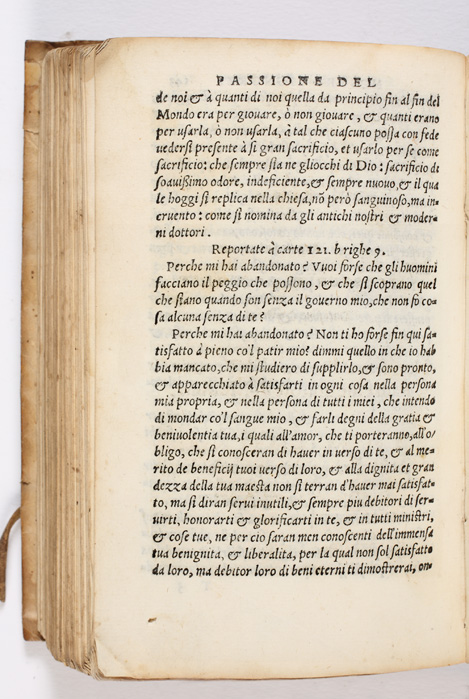 PASSIONE DEL
de noi & à quanti di noi quella da principio fin al fin del
Mondo era per giouare, ò non giouare, & quanti erano
per usarla, ò non usarla, à tal che ciascuno possa con fede
uedersi presente à si gran sacrificio, et usarlo per se come
sacrificio: che sempre sta ne gliocchi di Dio: sacrificio di
soauißimo odore, indeficiente, & sempre nuouo, & il qua
le hoggi si replica nella chiesa, nõ però sanguinoso, ma in-
cruento: come si nomina da gli antichi nostri & moder-
ni dottori.
Reportate à carte 121. b righe 9.
Perche mi hai abandonato? Vuoi forse che gli huomini
facciano il peggio che possono, & che si scoprano quel
che siano quando son senza il gouerno mio, che non fò co-
sa alcuna senza di te?
Perche mi hai abandonato? Non ti ho forse fin qui sa-
tisfatto à pieno co'l patir mio? dimmi quello in che io hab
bia mancato, che mi studiero di supplirlo, & sono pronto,
& apparecchiato à satisfarti in ogni cosa nella persona
mia propria, & nella persona di tutti i miei, che intendo
di mondar co'l sangue mio, & farli degni della gratia &
beniuolentia tua, i quali all'amor, che ti porteranno, all'o/
bligo, che si conosceran di hauer in uerso di te, & al me-
rito de beneficij tuoi uerso di loro, & alla dignita et gran
dezza della tua maesta non si terran d'hauer mai satisfat-
to, ma si diran serui inutili, & sempre piu debitori di ser-
uirti, honorarti & glorificarti in te, & in tutti ministri,
& cose tue, ne per cio saran men conoscenti dell'immensa
tua benignita, & liberalita, per la qual non sol satisfatto
da loro, ma debitor loro di beni eterni ti dimostrerai, on-